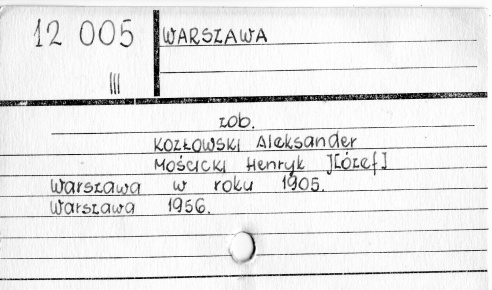 12 005
WARSZAWA
III
zob.
KOZŁOWSKI Aleksander
MOŚCICKI Henryk J[ózef]
Warszawa w roku 1905.
Warszawa 1956.